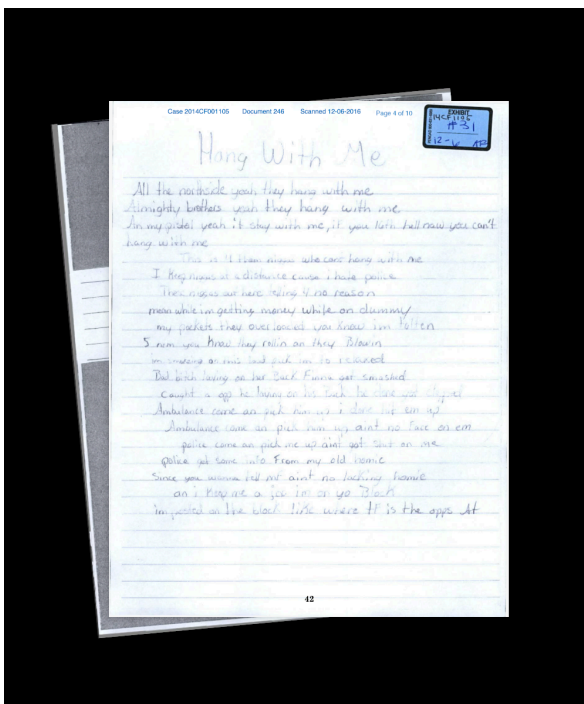 Case 2014CF001106 Document 246 Scanned 12-06-2016 Page 4 of 10
EXHIBIT
14CF1106
#31
12-6 AP
Hang With Me
All the northside yeah they hang with me
Almighty brothers yeah they hang with me
An my pistol yeah it stay with me, if you lotk hell naw you can't
hang with me
This is 4 them niggas who cant hang with me
I Keep niggas at a distance cause i hate police
These niggas out here telling 4 no reason
mean while im getting money while on dummy
my pockets they overloaded you know im
5 num you Know they rollin an they Blowin
im smoking on this loud pack im to relaxed
Bad bitch laying on her Back Finna get smashed
caught a opp he laying on his back he done got clapped
Ambulance come an pick him up i done hit em up
Ambulance come an pick him up aint no Face on em
police come an pick me up aint got shit on me
police got some info From my old homie
Since you wanna tell mf aint no lacking homie
an i Keep me a im on yo Block
im posted on the block like where tf is the opps At
42